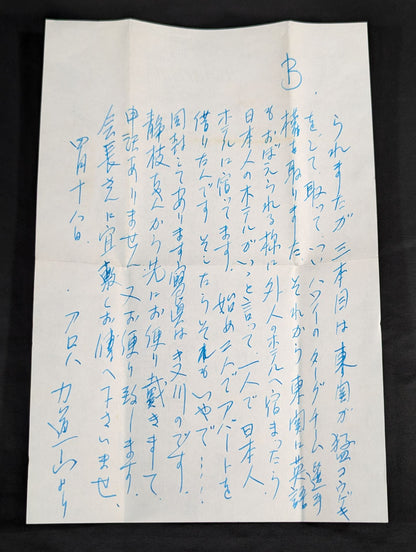 B
られましたが三本目は東関が猛コウゲキ
をして取って、ついハワイのターグチーム選手
権を取りました、それから東関は英語
もおぼえられる様に外人のホテルへ宿まったら
日本人のホテルがいっと言って一人で日本人
ホテルに宿ってます。始め二人でアパートを
借りたんです そしたらそれもいやで……
同封してあります寫真はキ又川のです。
静枝さんから先にお便り戴きまして
申訳ありません 又お便り致します。
会長さんに宜敷くお傳へ下さいませ、
四月十八日、
アロハ 力道山より